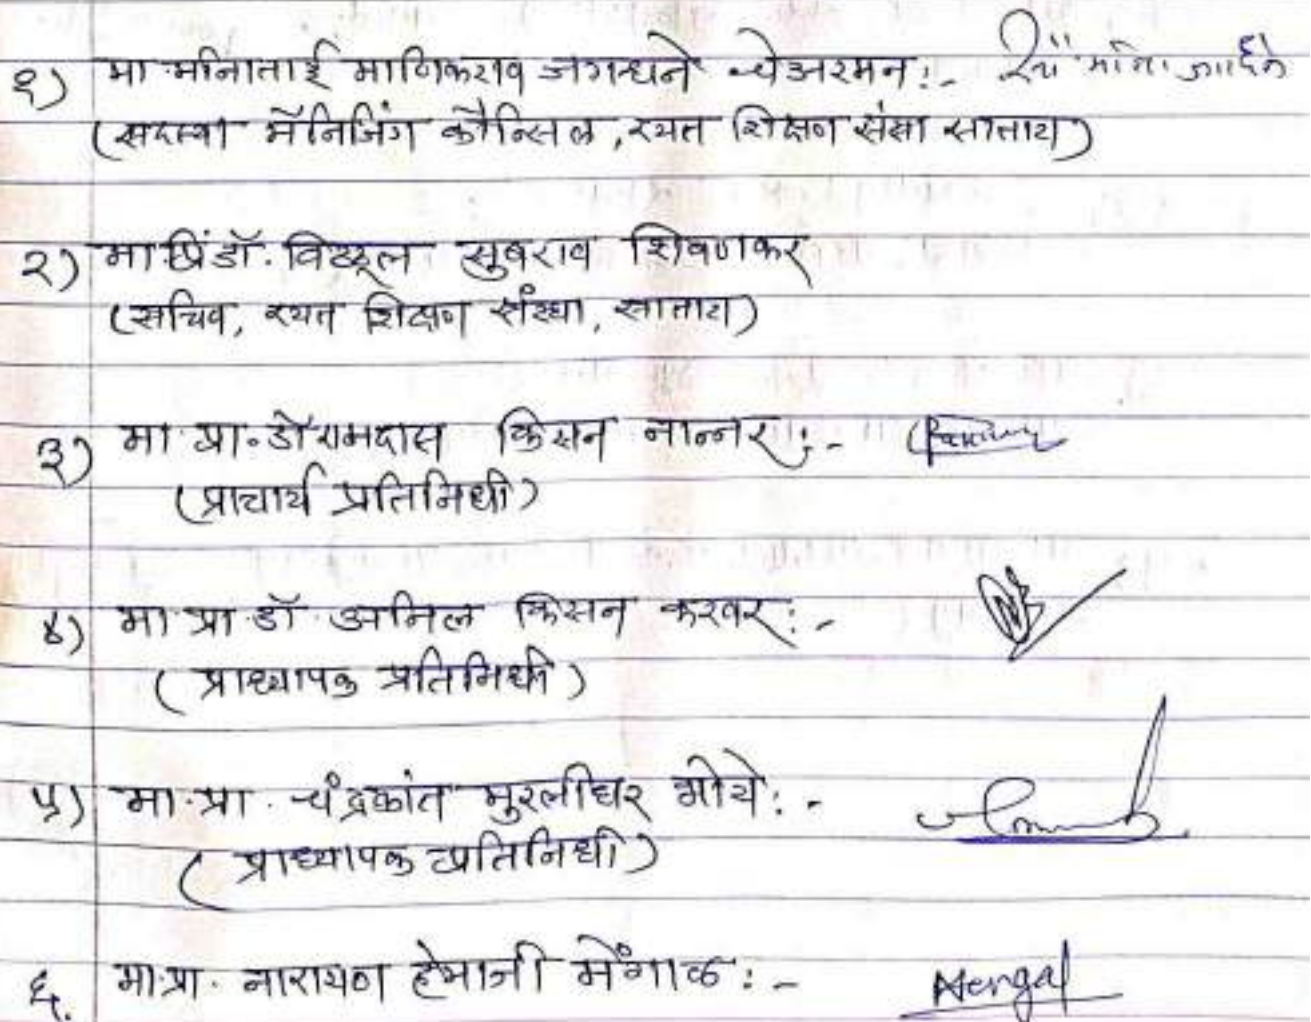 १) मा.मीनाताई माणिकराव जगधने चेअरमन:-
(सदस्या मॅनेजिंग कौन्सिल, रयत शिक्षण संस्था सातारा)
२) मा.प्रिं.डॉ. विठ्ठल सुबराव शिवणकर
(सचिव, रयत शिक्षण संस्था, सातारा)
३) मा.प्रा.डॉ रामदास किसन नान्नर:-
(प्राचार्य प्रतिनिधी)
४) मा.प्रा.डॉ. अनिल किसन करवर:-
(प्राध्यापक प्रतिनिधी)
५) मा.प्रा. चंद्रकांत मुरलीधर भोये:-
(प्राध्यापक प्रतिनिधी)
६. मा.प्रा. नारायण हेमाजी मेंगाळ:- Mengal